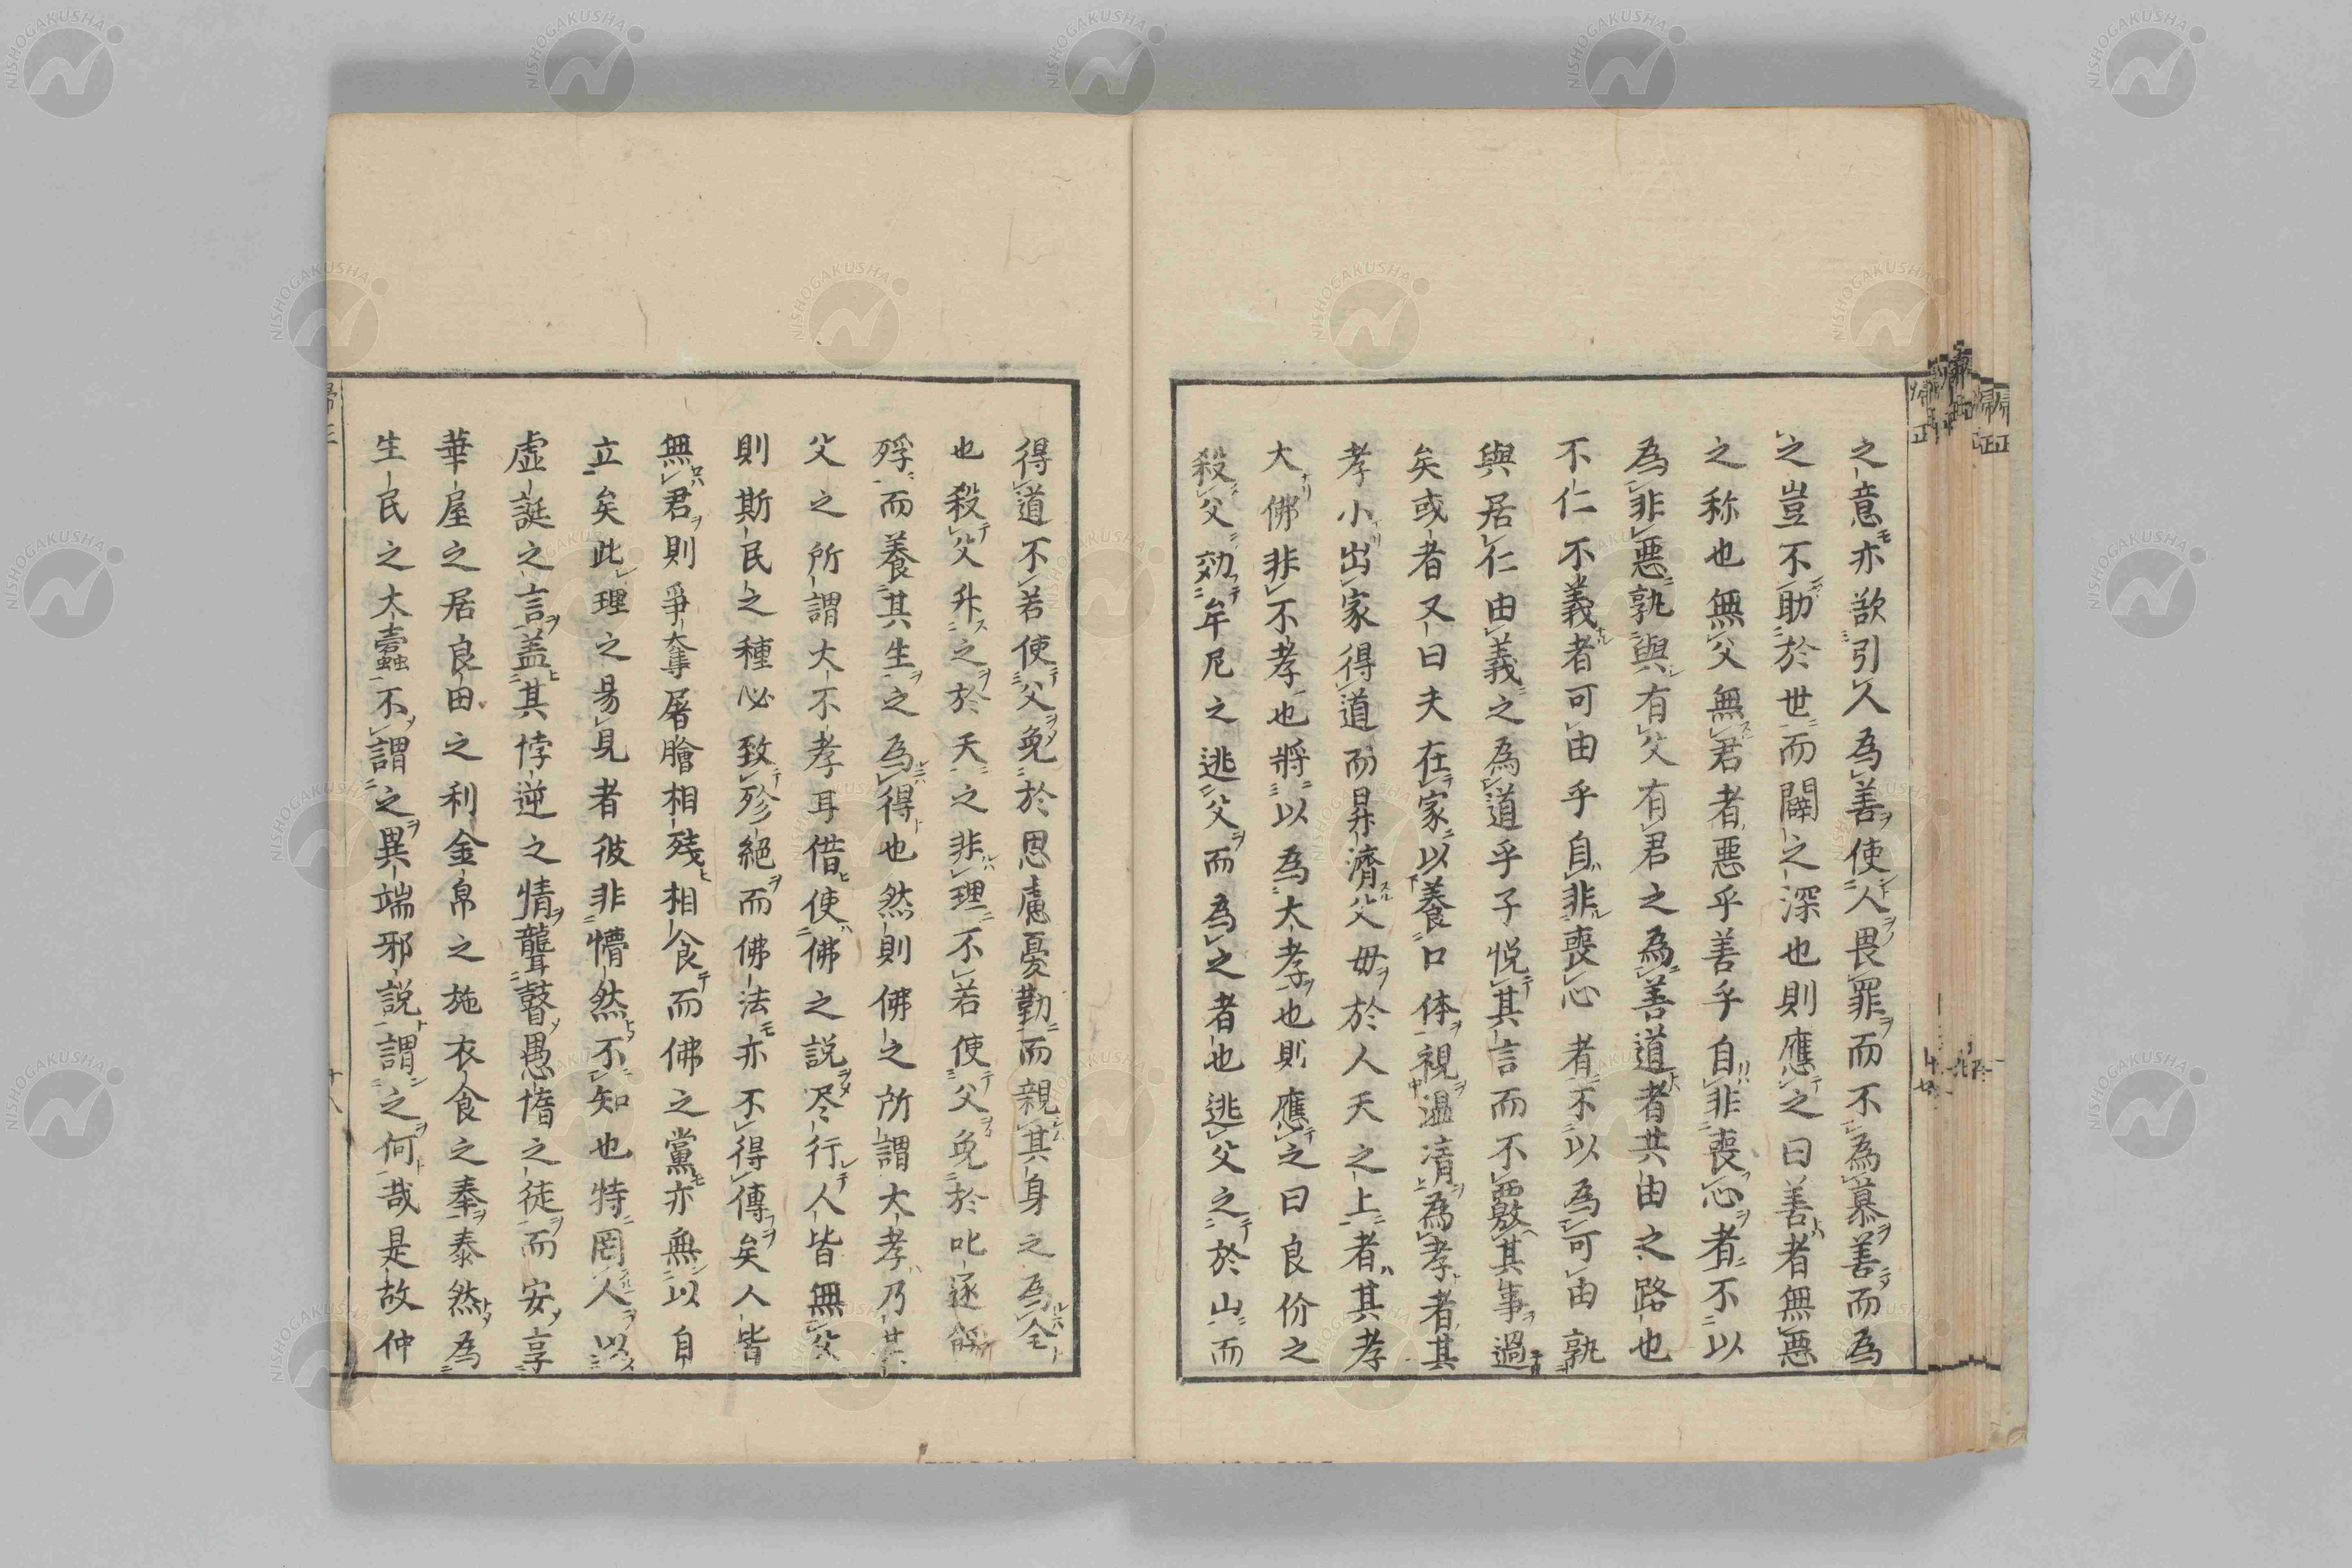 之意亦欲引人為善使人畏罪而不為慕善而為
之豈不助於世而闢之深也則應之曰善者無惡
之称也無父無君者惡乎善乎自非喪心者不以
為非惡孰與有父有君之為善道者共由之路也
不仁不義者可由乎自非喪心者不以為可由孰
與居仁由義之為道乎子悦其言而不覈其事過
矣或者又曰夫在家以養口体視温凊為孝者其
孝小出家得道而昇濟父母於人天之上者其孝
大佛非不孝也將以為太孝也則應之曰良价之
殺父効牟尼之逃父而為之者也逃父之於山而
得道不若使父免於思慮憂勤而親其身之為全
也殺父升之於天之非理不若使父免於叱逐
殍而養其生之為得也然則佛之所謂大孝乃其
父之所謂大不孝耳借使佛之説尽行人皆無父
則斯民之種必致殄絕而佛法亦不得傳矣人皆
無君則爭奪屠膾相残相食而佛之黨亦無以自
立矣此理之昜見者彼非懵然不知也特罔人以
虚誕之言盖其悖逆之情聾瞽愚惛之徒而安享
華屋之居良田之利金帛之施衣食之奉泰然為
生民之太蠹不謂之異端邪説謂之何哉是故仲
十八